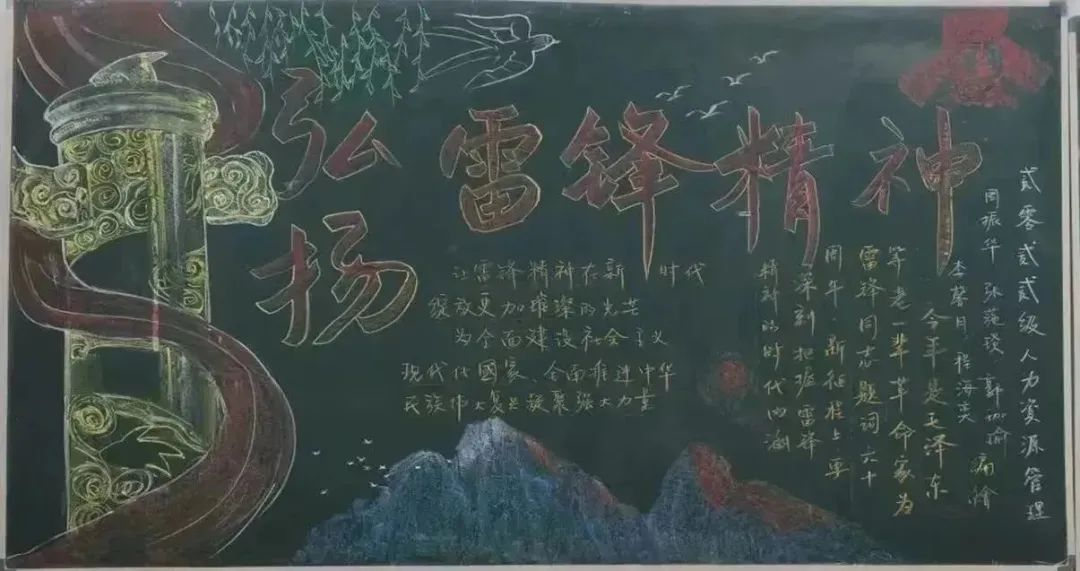 弘扬
雷锋精神
让雷锋精神在新时代
绽放更加璀璨的光芒
为全面建设社会主义
现代化國家、全面推进中华
民族伟大复兴凝聚强大力量
贰零贰贰级人力资源管理
周振华
李馨月 程海英
今年是毛泽东
等老一辈革命家为
雷锋同志题词六十
周年,新征程上要
深刻把握雷锋
精神的时代内涵